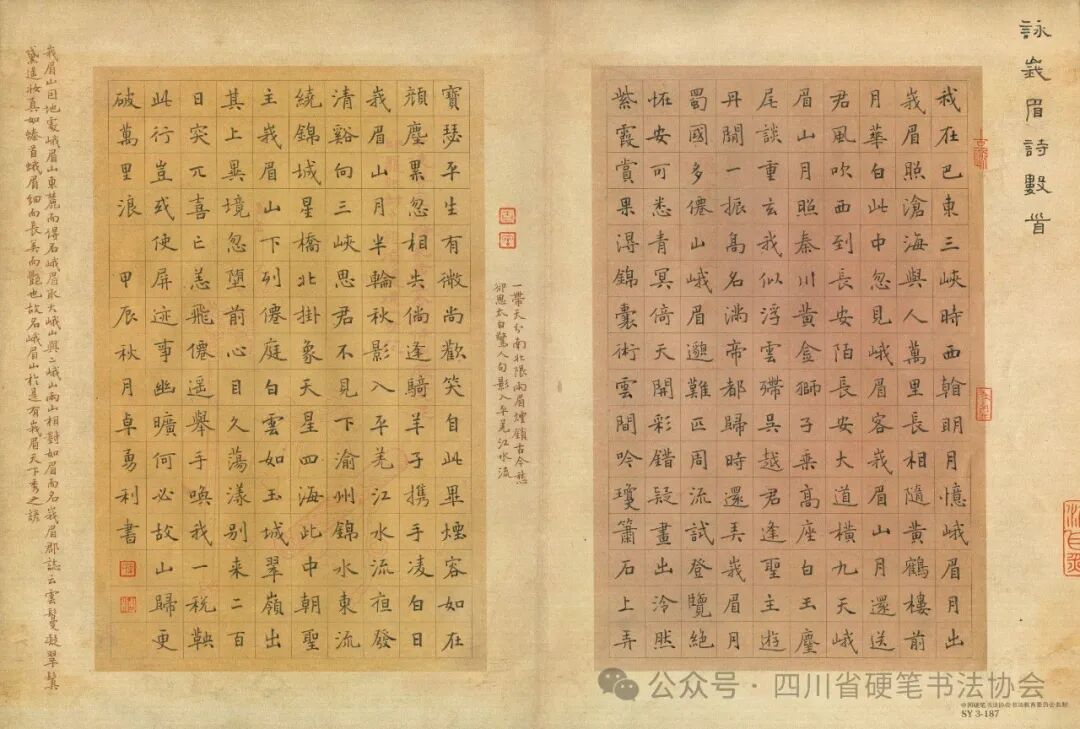 詠峩眉詩數首
我在巴東三峽時西翰明月憶峨眉月出
峩眉照滄海與人萬里長相隨黃鶴樓前
月華白此中忽見峨眉客峩眉山月還送
君風吹西到長安陌長安大道橫九天峨
眉山月照秦川黃金獅子乘高座白玉麈
尾談重玄我似浮雲殢吳越君逢聖主遊
丹開一振高名滿帝都歸時還弄峩眉月
蜀國多僊山峨眉邈難匹周流試登覽絕
怪安可悉青冥倚天開彩錯疑畫出泠然
紫霞賞果得錦囊術雲間吟瓊簫石上弄
一帶天分南北限兩眉煙鎖古今愁
卻思太白驚人句影入平羌江水流
寶瑟平生有微尚歡笑自此畢煙容如在
顏塵累忽相失倘逢騎羊子攜手凌白日
峩眉山月半輪秋影入平羌江水流夜發
清谿向三峽思君不見下渝州錦水東流
繞錦城星橋北掛象天星四海此中朝聖
主峩眉山下列僊庭白雲如玉城翠嶺出
其上異境忽墮前心目久蕩漾別來二百
日突兀喜亡恙飛僊遥舉手喚我一税鞅
此行豈或使屏迹事幽曠何必故山歸更
破萬里浪 甲辰秋月卓勇利書
峩眉山因地處峨眉山東麓而得名峨眉取大峨山與二峨山兩山相對如眉而名峩眉郡誌云雲鬘凝翠鬒
黛遥妝真如螓首蛾眉細而長美而艷也故名峨眉山於是有峩眉天下秀之譽
公众号 · 四川省硬笔书法协会
SY 3-187